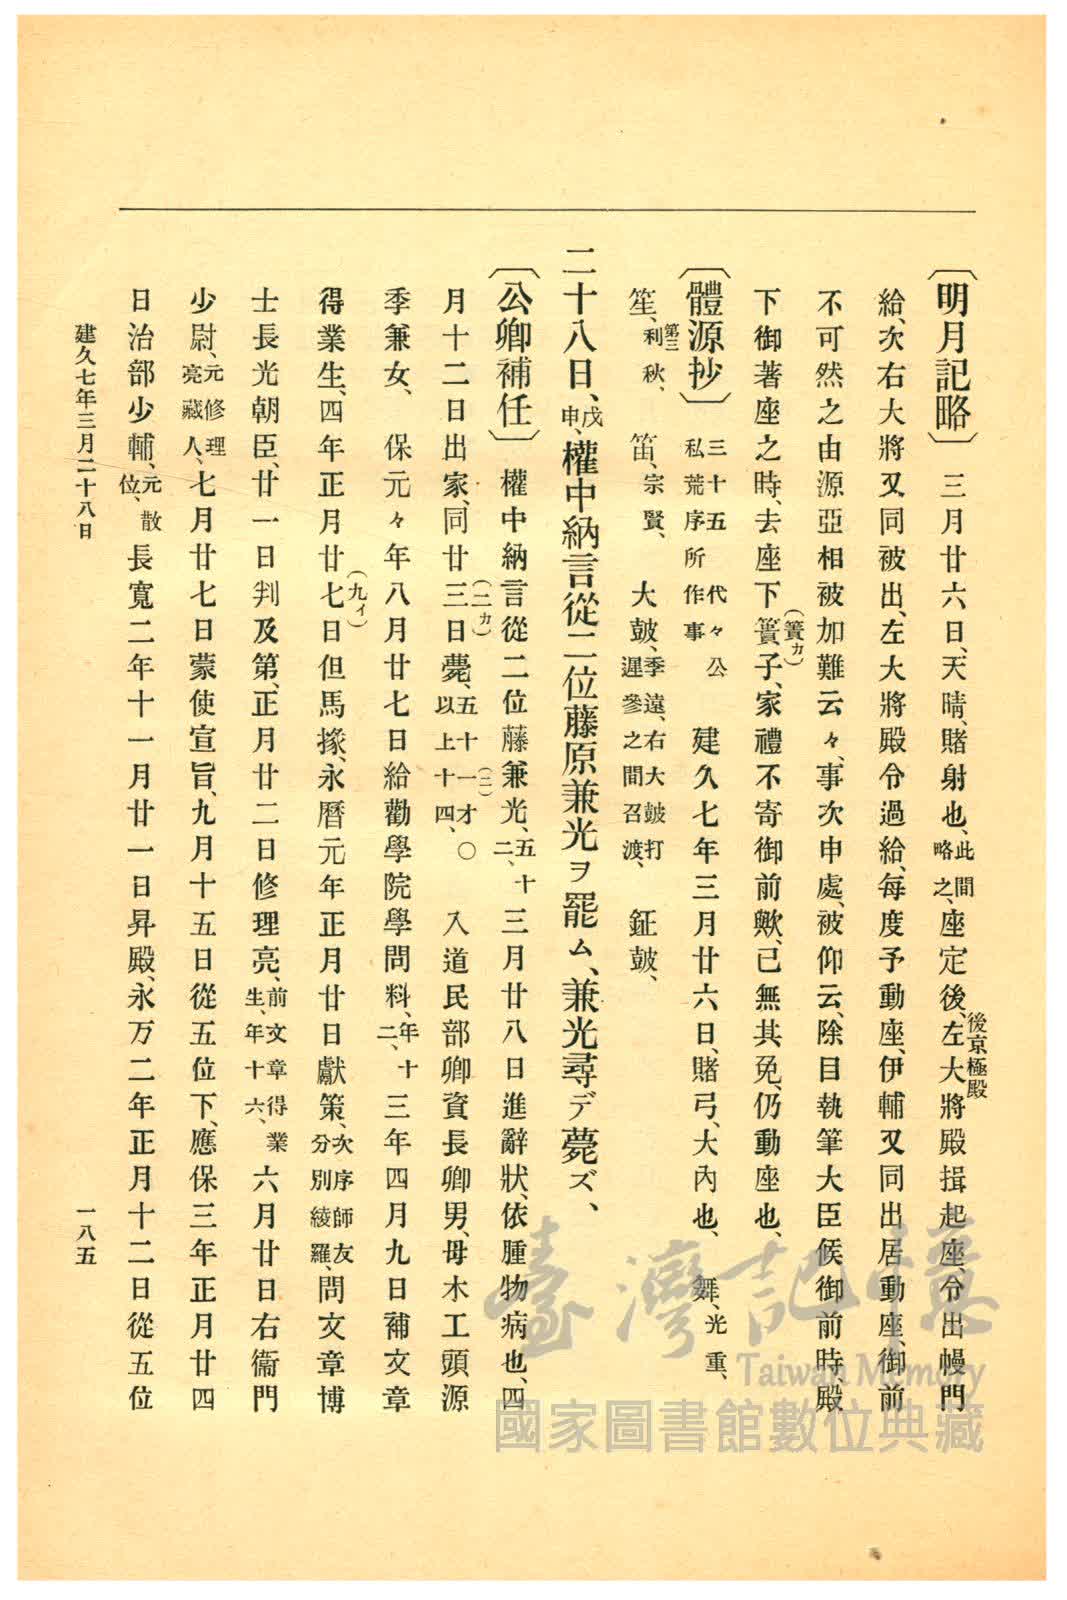 〔明月記略〕 三月廿六日、天晴、賭射也、此間略之、座定後、左大將殿揖起座、令出幔門
後京極殿
給、次右大將又同被出、左大將殿令過給、每度予動座、伊輔又同出居動座、御前
不可然之由源亞相被加難云々、事次申處、被仰云、除目執筆大臣候御前時、殿
下御著座之時、去座下簀子、家禮不寄御前歟、已無其免、仍動座也、
(簀カ)
〔體源抄〕 三十五 代々公私荒序所作事 建久七年三月廿六日、賭弓、大內也、 舞、光重、
第三
笙、利秋、 笛、宗賢、 大皷、季遠、右大皷打遲參之間召渡、 鉦皷、
二十八日、戊申、權中納言從二位藤原兼光ヲ罷ム、兼光尋デ薨ズ、
〔公卿補任〕 權中納言從二位藤兼光、五十二、三月廿八日進辭狀、依腫物病也、四
月十二日出家、同廿三日薨、五十一才〇以上十四、 入道民部卿資長卿男、母木工頭、源
(二カ)
(二)
季兼女、 保元々年八月廿七日給勸學院學問料、年十二、三年四月九日補文章
得業生、四年正月廿七日但馬掾、永曆元年正月廿日獻策、次序師友分別綾羅、問文章博
(九イ)
士長光朝臣、廿一日判及第、正月廿二日修理亮、前文章得業生、年十六、六月廿日右衞門
少尉、元修理亮藏人、七月廿七日蒙使宣旨、九月十五日從五位下、應保三年正月廿四
日治部少輔、元散位、長寬二年十一月廿一日昇殿、永万二年正月十二日從五位
建久七年三月二十八日
一八五
臺灣記憶
Taiwan Memory
國家圖書館數位典藏